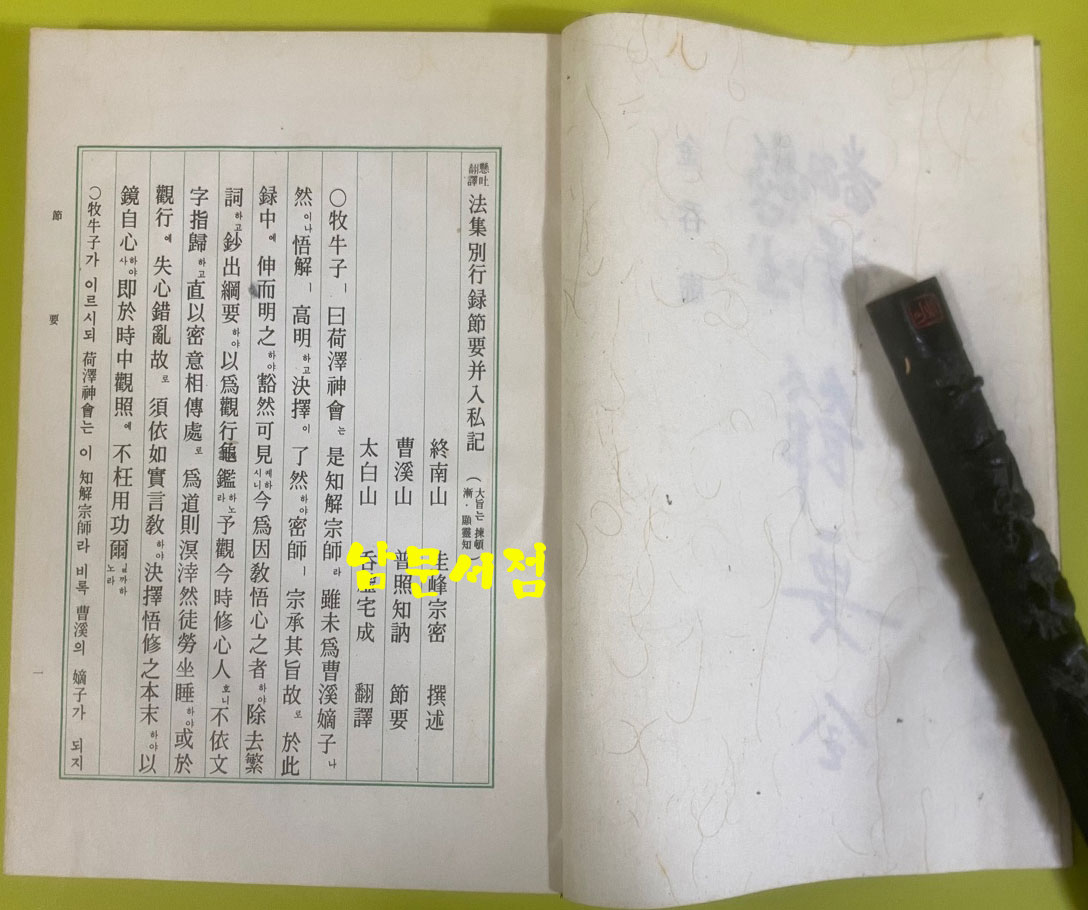 懸吐翻譯 法集別行録節要并入私記 (大旨는 揀頓漸·顯靈知)
終南山 圭峰宗密 撰述
曹溪山 普照知訥 節要
太白山 呑虛宅成 翻譯
○牧牛子ㅣ 曰荷澤神會는 是知解宗師라 雖未爲曹溪嫡子나
然이나悟解ㅣ 高明하고決擇이 了然하야密師ㅣ 宗承其旨故로 於此
録中에 伸而明之하야豁然可見케하시니今爲因敎悟心之者하야除去繁
詞하고鈔出綱要하야以爲觀行龜鑑하노라予觀今時修心人호니不依文
字指歸하고直以密意相傳處로 爲道則溟涬然徒勞坐睡하야或於
觀行에 失心錯亂故로 須依如實言敎하야決擇悟修之本末하야以
鏡自心하야사即於時中觀照에 不枉用功爾니까하노라
○牧牛子가 이르시되 荷澤神會는 이 知解宗師라 비록 曹溪의 嫡子가 되지
節要
一
남문서점